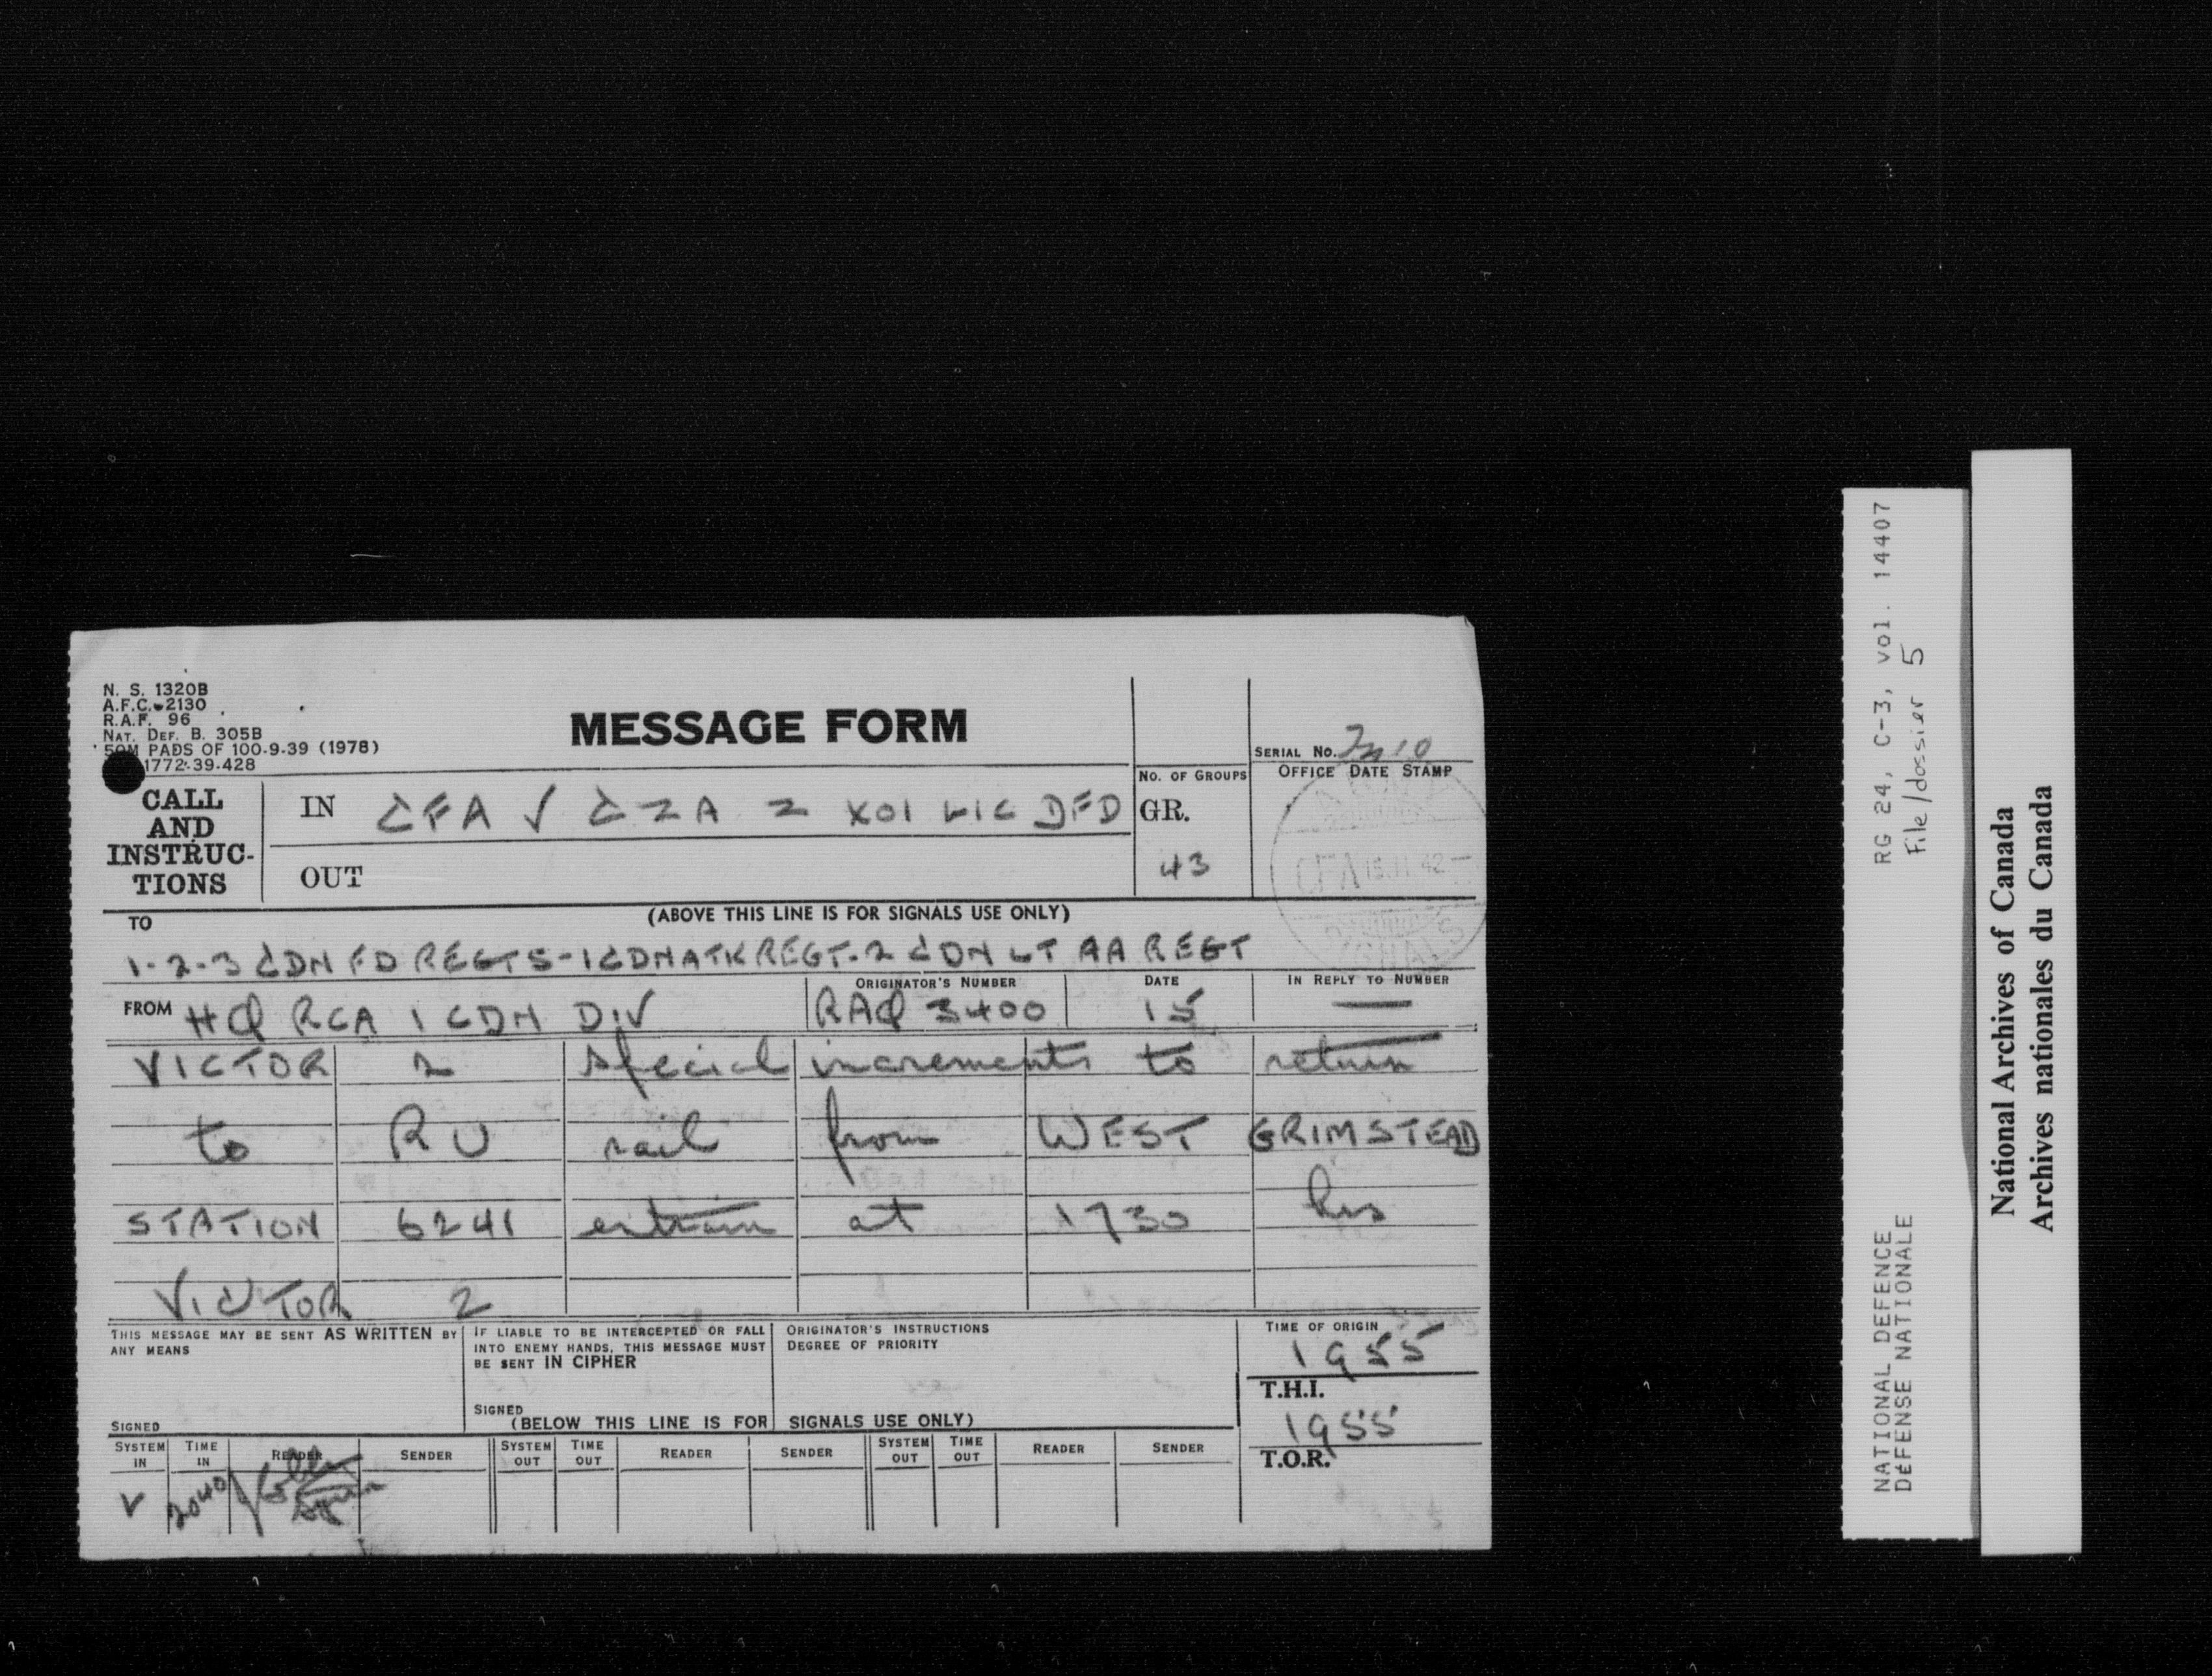 N. S. 1320B
A.F.C. 2130
R.A.F. 96
NAT. DEF. B. 305B
50M PADS OF 100-9-39 (1978)
1772-39-428
MESSAGE FORM
SERIAL NO. 10
CALL AND INSTRUCTIONS
IN CFA V CZA Z XO1 DFD
OUT
NO. OF GROUPS
GR.
43
OFFICE DATE STAMP
CFA 15.11.42
SIGNALS
TO
(ABOVE THIS LINE IS FOR SIGNALS USE ONLY)
1-2-3 CDN FD REGTS-1 CDN ATK REGT-2 CDN LT AA REGT
FROM HQ RCA 1 CDN DIV
ORIGINATOR'S NUMBER
RAQ 3400
DATE
15
IN REPLY TO NUMBER
—
VICTOR 2 special increments to return
to RU rail from WEST GRIMSTEAD
STATION 6241 entrain at 1730 hrs
VICTOR 2
THIS MESSAGE MAY BE SENT AS WRITTEN BY
ANY MEANS
SIGNED
IF LIABLE TO BE INTERCEPTED OR FALL
INTO ENEMY HANDS, THIS MESSAGE MUST
BE SENT IN CIPHER
SIGNED
ORIGINATOR'S INSTRUCTIONS
DEGREE OF PRIORITY
TIME OF ORIGIN
1955
T.H.I.
1955
T.O.R.
(BELOW THIS LINE IS FOR SIGNALS USE ONLY)
SYSTEM IN TIME IN READER SENDER SYSTEM OUT TIME OUT READER SENDER SYSTEM OUT TIME OUT READER SENDER
V 2040
RG 24, C-3, vol. 14407
File/dossier 5
NATIONAL DEFENCE
DÉFENSE NATIONALE
National Archives of Canada
Archives nationales du Canada